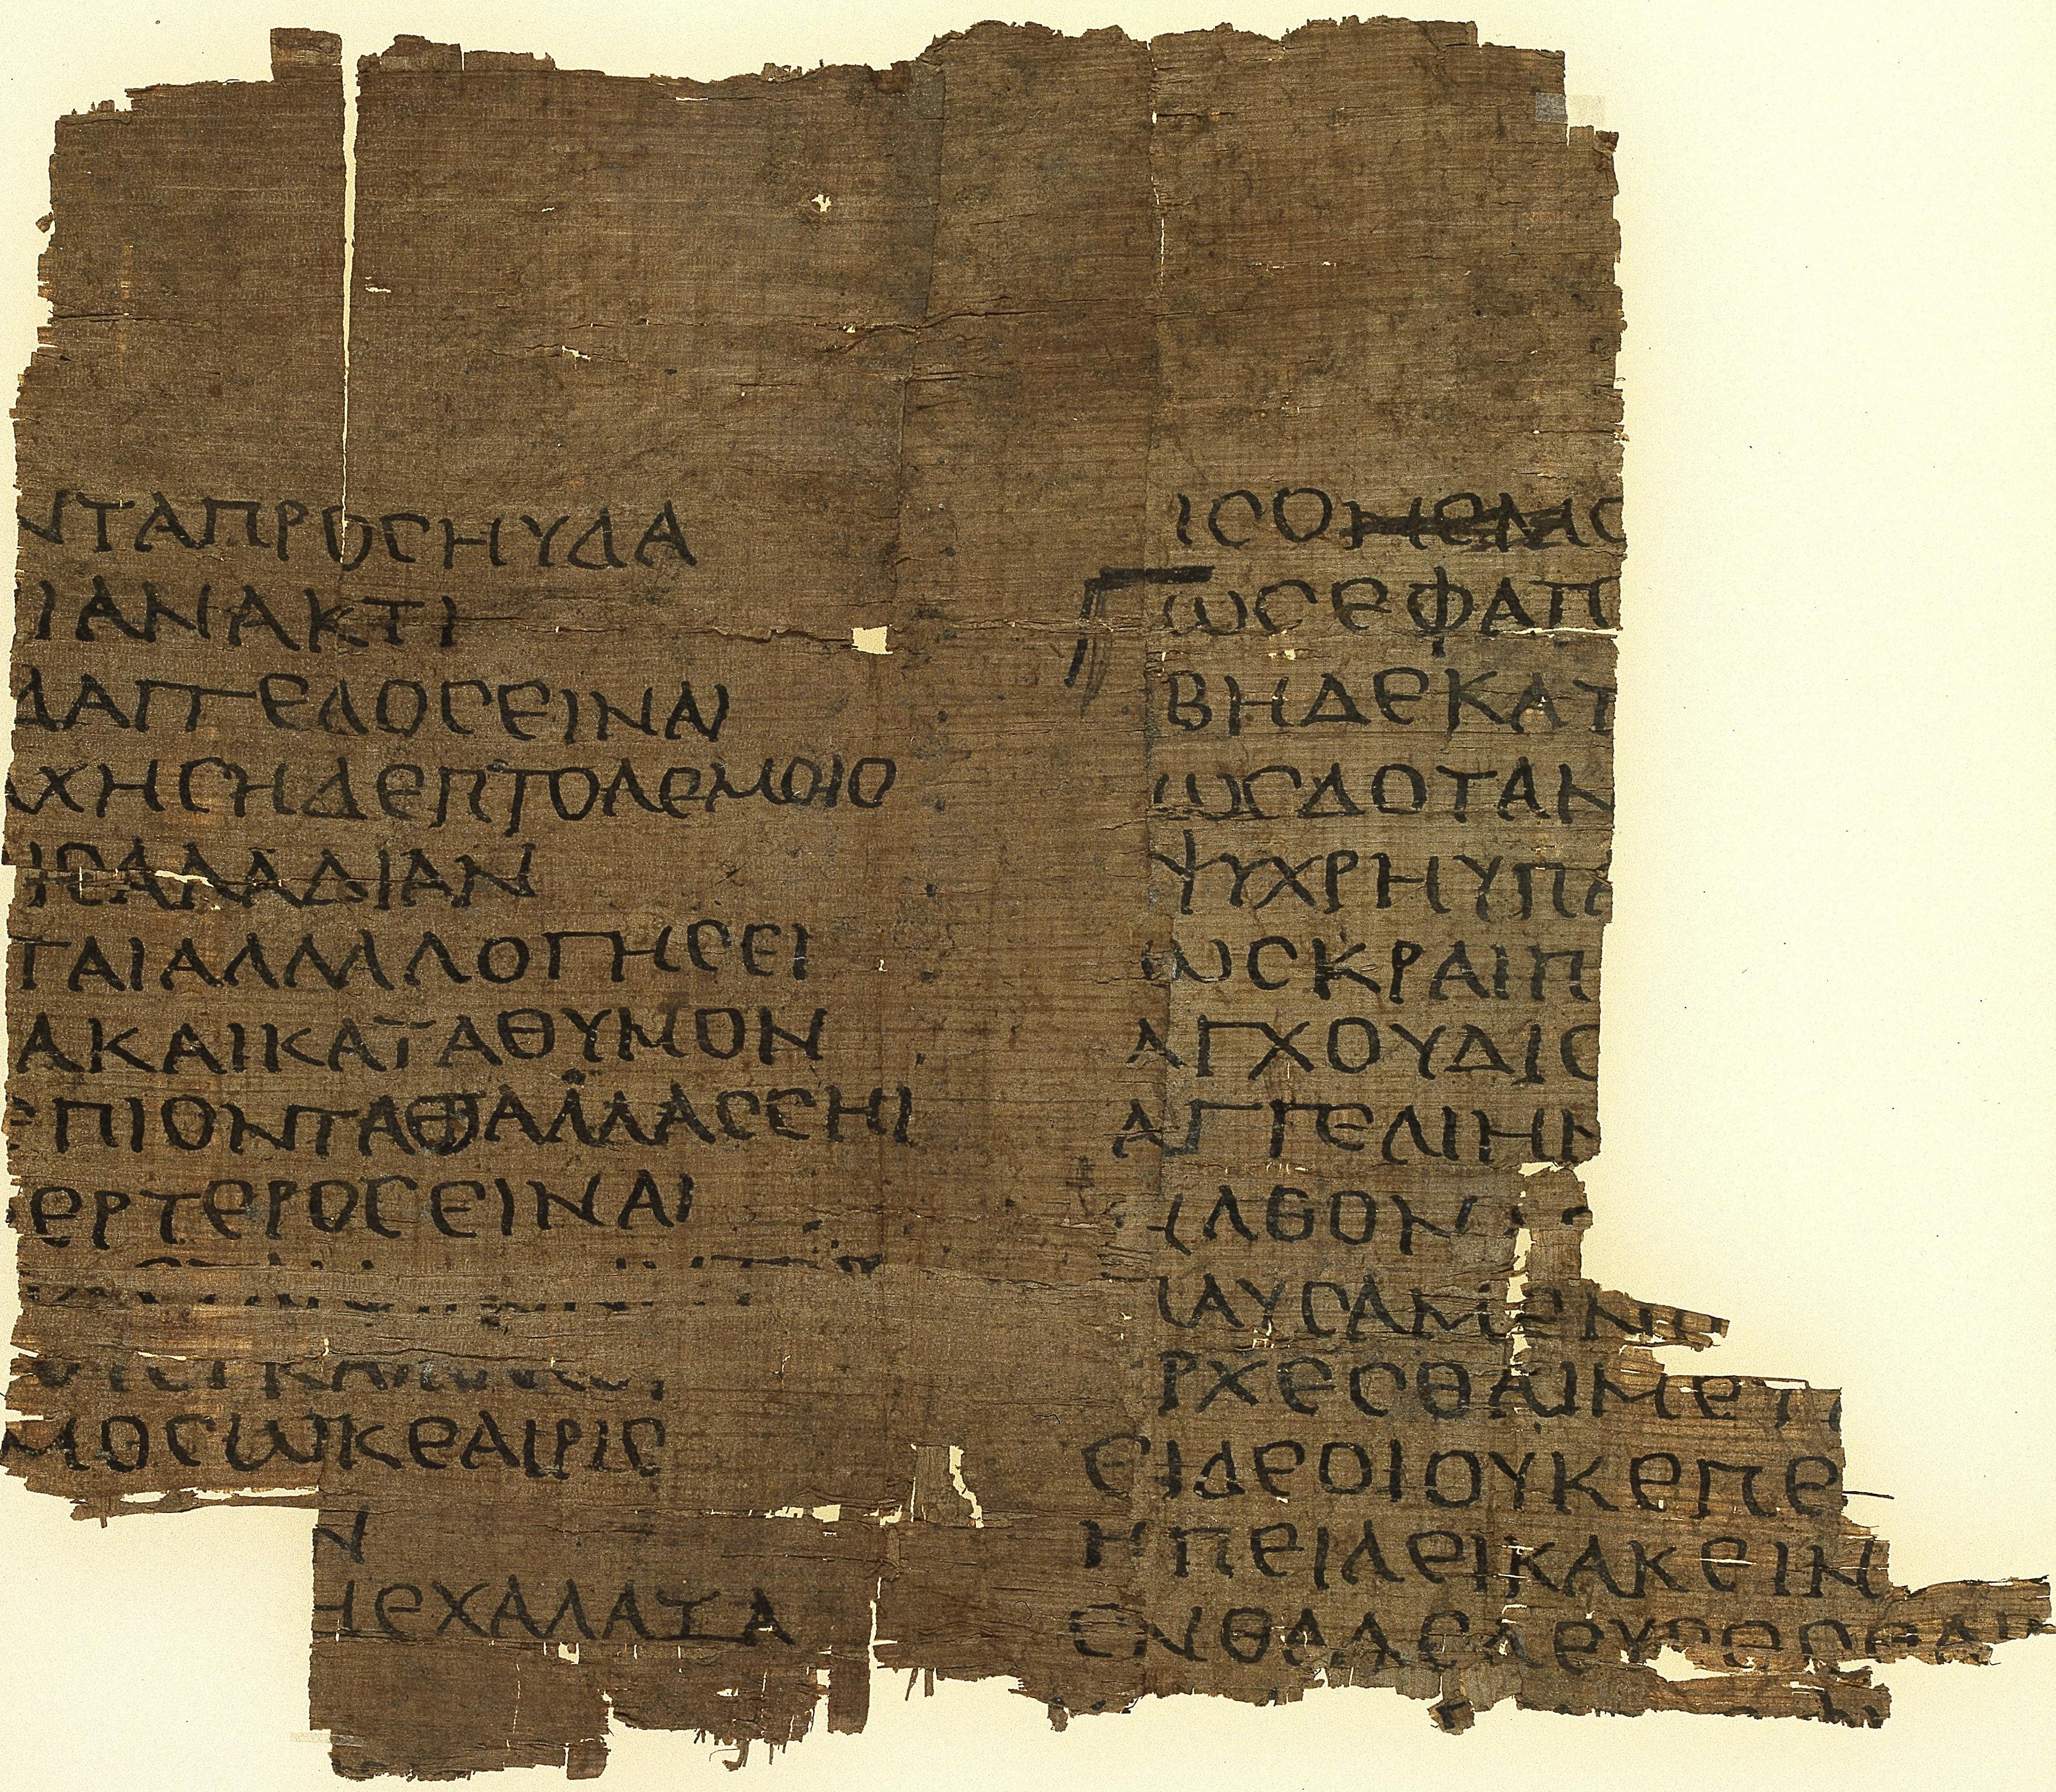 ΝΤΑΠΡΟϹΗΥΔΑ
ΙΑΝΑΚΤΙ
ΔΑΓΓΕΛΟϹΕΙΝΑΙ
ΑΧΗϹΗΔΕΠΤΟΛΕΜΟΙΟ
ΗΕΙϹΑΛΑΔΙΑΝ
ΤΑΙΑΛΛΑΛΟΓΗϹΕΙ
ΑΚΑΙΚΑΤΑΘΥΜΟΝ
ΕΠΙΟΝΤΑΘΑΛΑΑϹϹΗΙ
ΕΡΤΕΡΟϹΕΙΝΑΙ
ΜΟϹΩΚΕΑΙΡΙϹ
Ν
ΗΕΧΑΛΑΖΑ
ΙϹΟΝΕΜΟ
ΩϹΕΦΑΠ
ΒΗΔΕΚΑΤ
ΩϹΔΟΤΑΝ
ΨΥΧΡΗΥΠΑ
ΩϹΚΡΑΙΠ
ΑΓΧΟΥΔΙϹ
ΑΓΓΕΛΙΗΝ
ΗΛΘΟΝ
ΠΑΥϹΑΜΕΝ
ΡΧΕϹΘΑΙΜΕΤ
ΕΙΔΕΟΙΟΥΚΕΠΕ
ΗΠΕΙΛΕΙΚΑΚΕΙΝ
ΕΝΘΑΔΕΛΕΥϹΕϹΘΑΙ